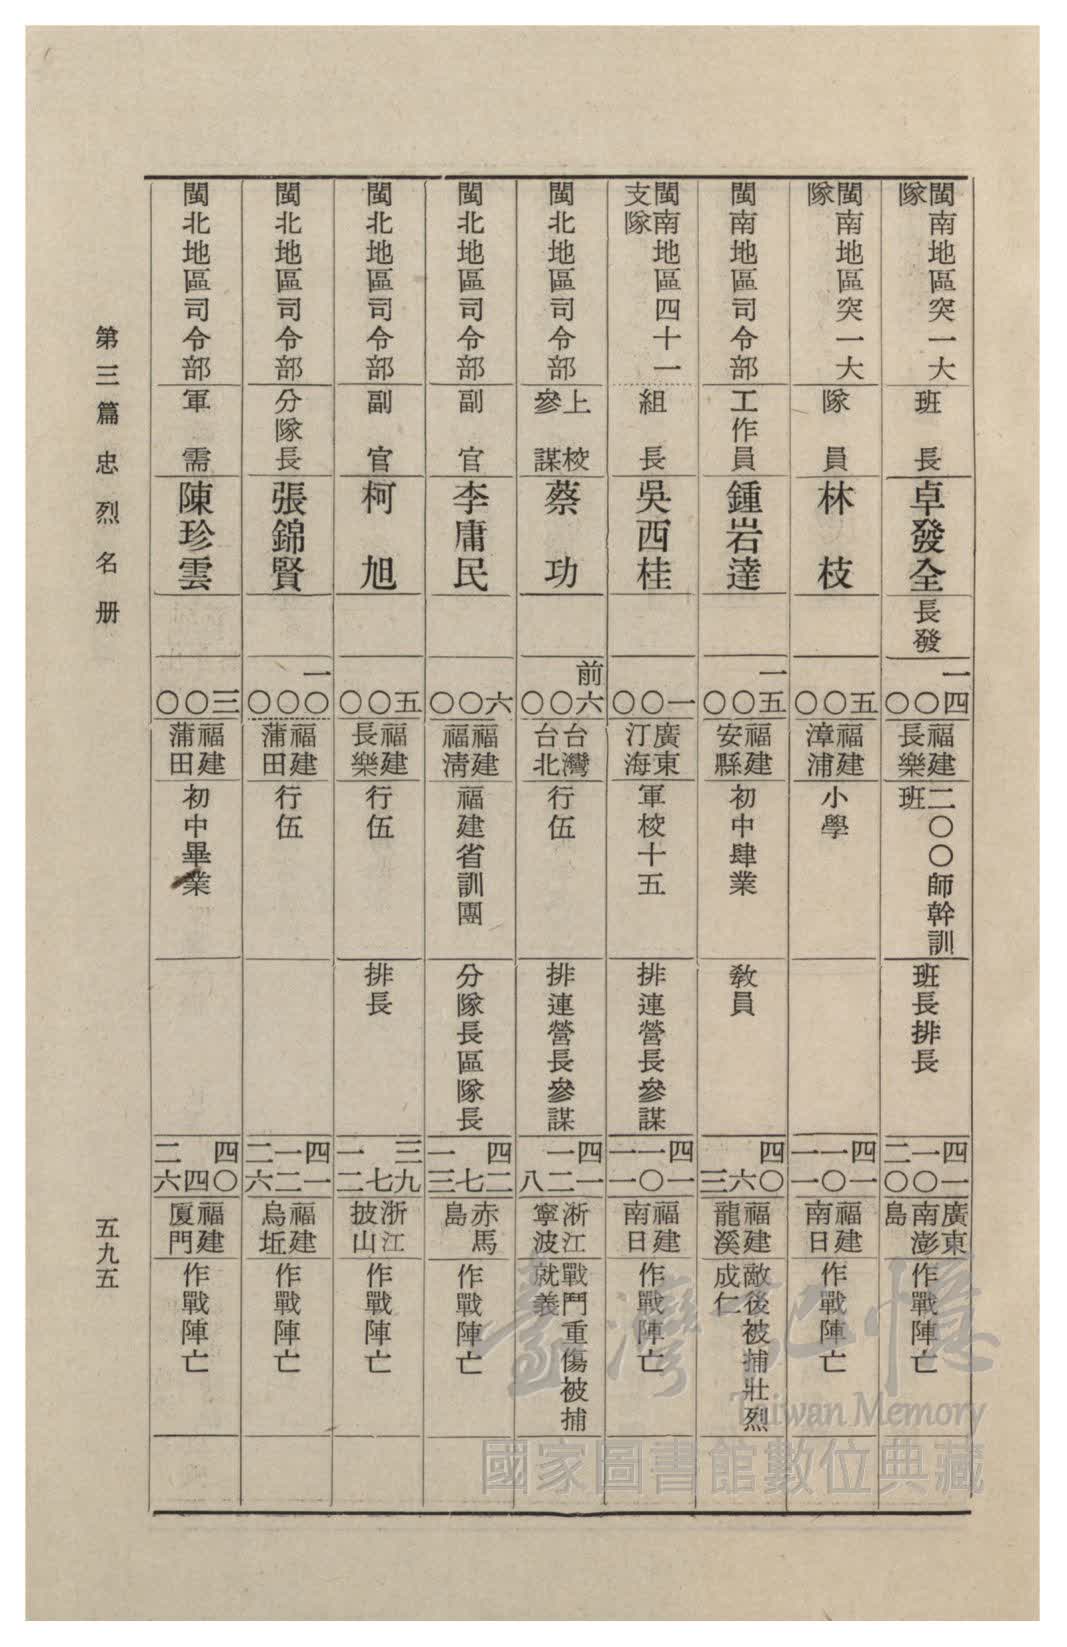 閩南地區突一大隊 班長 卓發全 長發 一四〇〇 福建長樂 二〇〇師幹訓班 班長排長 四一一〇二〇 廣東南澎島 作戰陣亡
閩南地區突一大隊 隊員 林枝 五〇〇 福建漳浦 小學 四一一〇一一 福建南日 作戰陣亡
閩南地區司令部 工作員 鍾岩達 一五〇〇 福建安縣 初中肆業 教員 四〇六三 福建龍溪 敵後被捕壯烈成仁
閩南地區四十一支隊 組長 吳西桂 一〇〇 廣東汀海 軍校十五 排連營長參謀 四一一〇一一 福建南日 作戰陣亡
閩北地區司令部 上校參謀 蔡功 前六〇〇 台灣台北 行伍 排連營長參謀 四一一二八 浙江寧波 戰鬥重傷被捕就義
閩北地區司令部 副官 李庸民 六〇〇 福建福淸 福建省訓團 分隊長區隊長 四二七一三 赤馬島 作戰陣亡
閩北地區司令部 副官 柯旭 五〇〇 福建長樂 行伍 排長 三九七一二 浙江披山 作戰陣亡
閩北地區司令部 分隊長 張錦賢 一〇〇〇 福建蒲田 行伍 四一一二二六 福建烏坵 作戰陣亡
閩北地區司令部 軍需 陳珍雲 三〇〇 福建蒲田 初中畢業 四〇四二六 福建厦門 作戰陣亡
第三篇 忠烈名册
五九五
臺灣記憶
Taiwan Memory
國家圖書館數位典藏